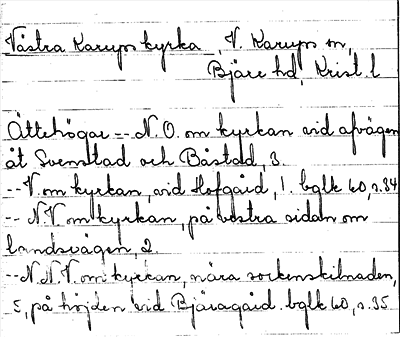 Västra Karups kyrka, V. Karups sn,
Bjäre hd, Krist. l
Ättehögar -- N.O. om kyrkan vid afvägen
åt Svenstad och Båstad, 3.
-- V. om kyrkan, vid Hofgård, 1. bglk 60, s.34
-- N.V. om kyrkan, på västra sidan om
landsvägen, 2.
-- N.N.V. om kyrkan, nära sockenskilnaden,
5, på höjden vid Bjäragård. bglk 60, s.35